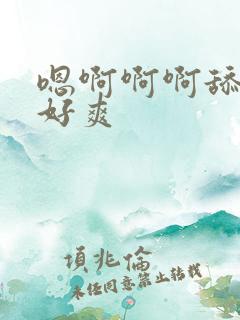 嗯啊啊啊舔
好爽
項兆倫
未任同意禁止转载